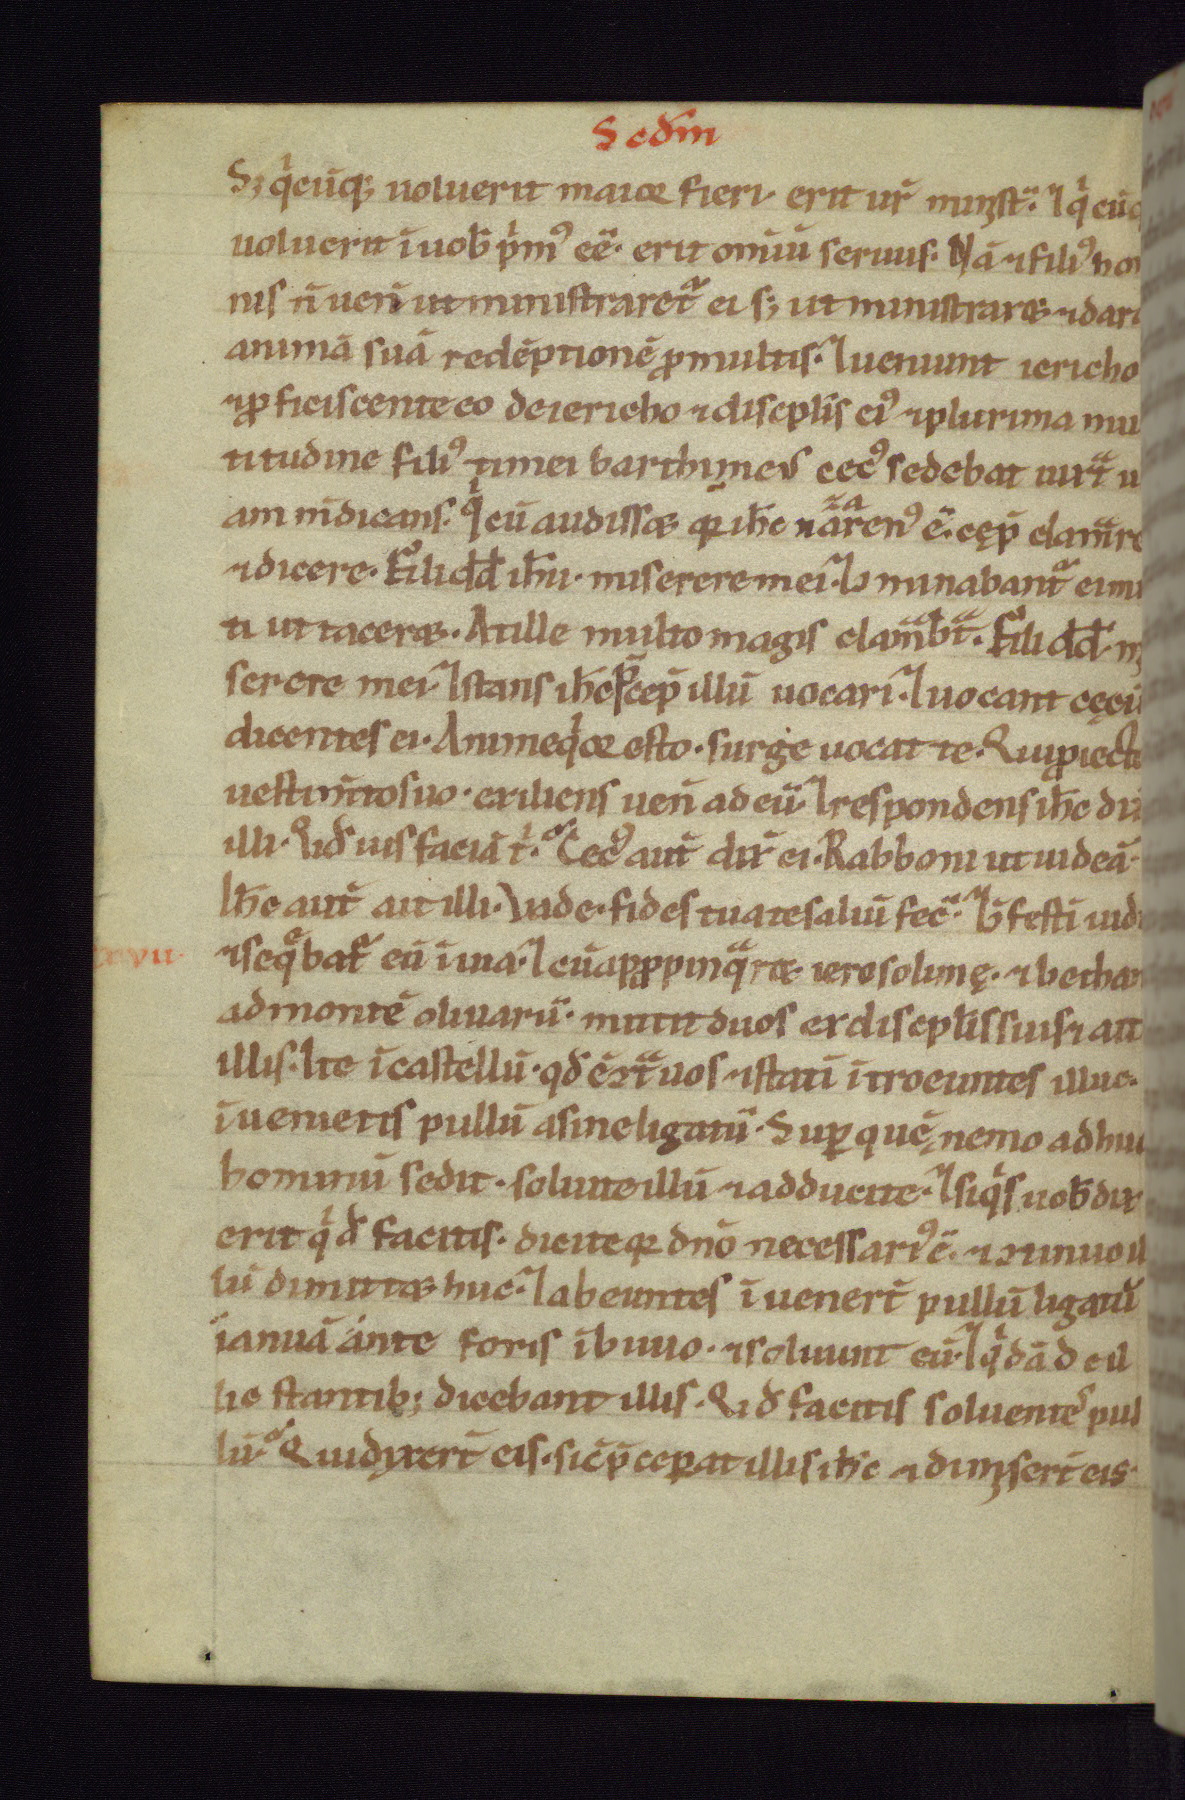 Scdm
S; qͥcūq; uoluerit maior fieri· erit ur̄ minist̄· ⁊ qͥ cūq
uoluerit ī uob̄ pͥm᷒ eē· erit omīū seruus· Nā ⁊ fili᷒ hom
nis n̄ uen̄ ut ministraret᷑ ei s; ut ministraret ⁊ dare
animā suā redēptionē ꝓ multis· ⁊ ueniunt iericho
⁊ ꝓficiscente eo de iericho ⁊ discipl̄is ei᷒ ⁊ plurima mul
titudine fili᷒ timei barthimeus cec᷒ sedebat iuxͣ ui
am mdicans· qͥ cū audisset qr ih̄c nazaren᷒ ē· cęp̄ clamͣre
⁊ dicere· Fili dd̄ ih̄u· miserere mei· ⁊ cōminabant᷑ ei mul
ti ut taceret· At ille multo magis clamͣbͣt· Fili dd̄· mi
serere mei· ⁊ stans ih̄c p̄cep̄ illū uocari· ⁊ uocant cęcū
dicentes ei· Animeqͥor esto· surge uocat te· Qui ꝓiecto
uestimto suo· exiliens uen̄ ad eū· ⁊ respondens ih̄c dix̄
illi· Qͥd uis faciā tͥ· Cec᷒ aut̄ dix̄ ei· Rabboni ut uideā·
Ih̄c aut̄ ait illi· Vade· fides tua te saluū fec̄· ⁊ cōfestī uidit
xxvii· ⁊ seqͤbat᷑ eū ī uia· ⁊ cū apppinqͣret ierosolimę· ⁊ bethan
ad montē oliuarū· mittit duos ex discipl̄is suis ⁊ ait
illis· Ite ī castellū· qd̄ ē cͣ uos ⁊ statī ītroeuntes illuc·
īuenietis pullū asine ligatū· Super quē nemo adhuc
hominū sedit· soluite illū ⁊ adducite· ⁊ siqͥs uob̄ dix
erit qͥd facitis· dicite qr dn̄o necessari᷒ ē· ⁊ cōtinuo il
lū dimittet huc· ⁊ abeuntes īuenert̄ pullū ligatū
ianuā ante foris ī biuio· ⁊ soluunt eū· ⁊ qͥdā de il
lic stantib; dicebant illis· Qͥd facitis soluentes pul
lū· Qui dixert̄ eis· sic̄ p̄ceperat illis ih̄c ⁊ dimisert̄ eis·